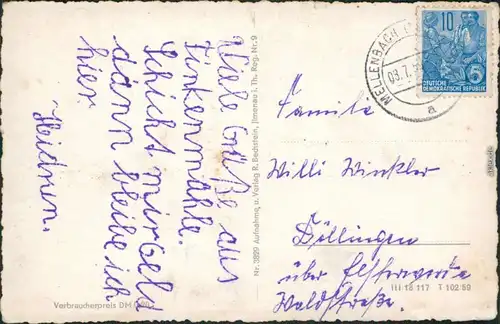 Viele Grüße aus
Finkenmühle.
Schickt mir Geld
dann bleibe ich
hier.
Heidrun.
Verbraucherpreis DM
Nr. 3829 Aufnahme u. Verlag R. Bechstein, (Ilmenau), Th. Reg. Nr. 9
MELLENBACH
09.7.
a
10
5
DEUTSCHE
DEMOKRATISCHE REPUBLIK
Familie
Willi Winkler
Döllingen
über Elsterwerda
Waldstraße.
III 18 117 T 102 59